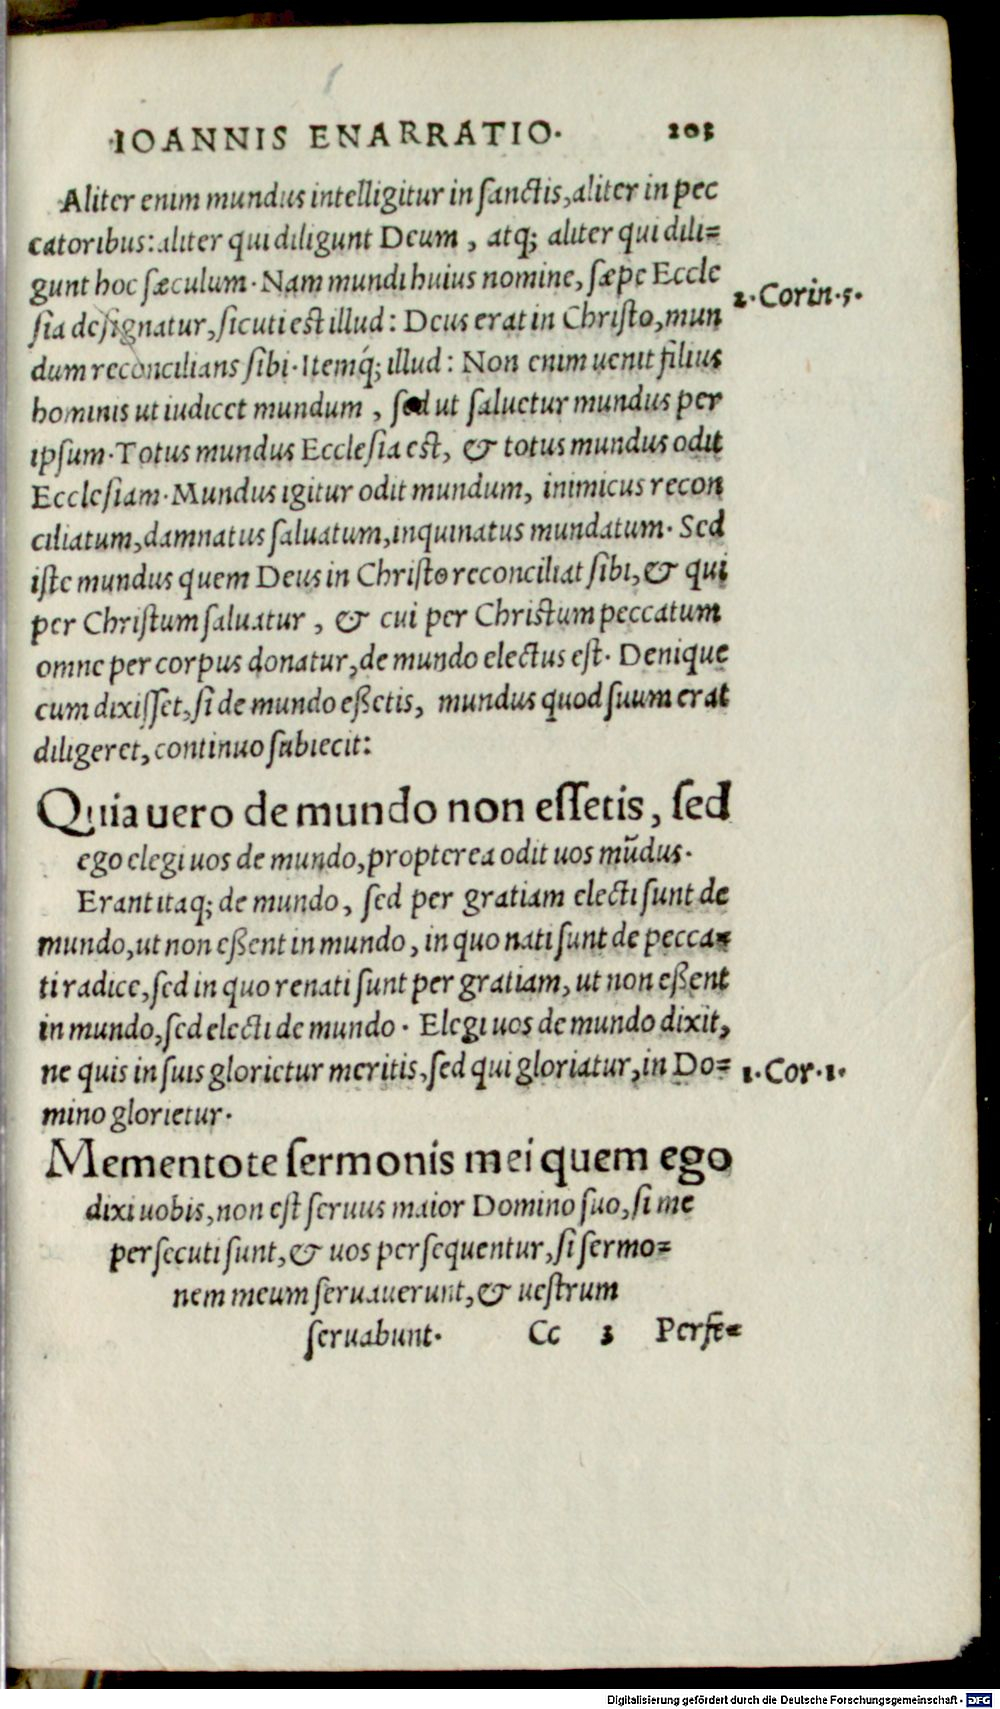 IOANNIS ENARRATIO. 203
Aliter enim mundus intelligitur in ſanctis, aliter in pec
catoribus: aliter qui diligunt Deum, atq; aliter qui dili=
gunt hoc ſæculum. Nam mundi huius nomine, ſæpe Eccle
2. Corin. 5.
ſia deſignatur, ſicuti eſt illud: Deus erat in Chriſto, mun
dum reconcilians ſibi. Itemq́; illud: Non enim uenit filius
hominis ut iudicet mundum, ſed ut ſaluetur mundus per
ipſum. Totus mundus Eccleſia eſt, & totus mundus odit
Eccleſiam. Mundus igitur odit mundum, inimicus recon
ciliatum, damnatus ſaluatum, inquinatus mundatum. Sed
iſte mundus quem Deus in Chriſto reconciliat ſibi, & qui
per Chriſtum ſaluatur, & cui per Chriſtum peccatum
omne per corpus donatur, de mundo electus eſt. Denique
cum dixiſſet, ſi de mundo eßetis, mundus quod ſuum erat
diligeret, continuo ſubiecit:
Quia uero de mundo non eſſetis, ſed
ego elegi uos de mundo, propterea odit uos mũdus.
Erant itaq; de mundo, ſed per gratiam electi ſunt de
mundo, ut non eßent in mundo, in quo nati ſunt de pecca=
ti radice, ſed in quo renati ſunt per gratiam, ut non eßent
in mundo, ſed electi de mundo. Elegi uos de mundo dixit,
ne quis in ſuis glorietur meritis, ſed qui gloriatur, in Do=
1. Cor. 1.
mino glorietur.
Mementote ſermonis mei quem ego
dixi uobis, non eſt ſeruus maior Domino ſuo, ſi me
perſecuti ſunt, & uos perſequentur, ſi ſermo=
nem meum ſeruauerunt, & ueſtrum
ſeruabunt. Cc 3 Perſe=
Digitalisierung gefördert durch die Deutsche Forschungsgemeinschaft - DFG